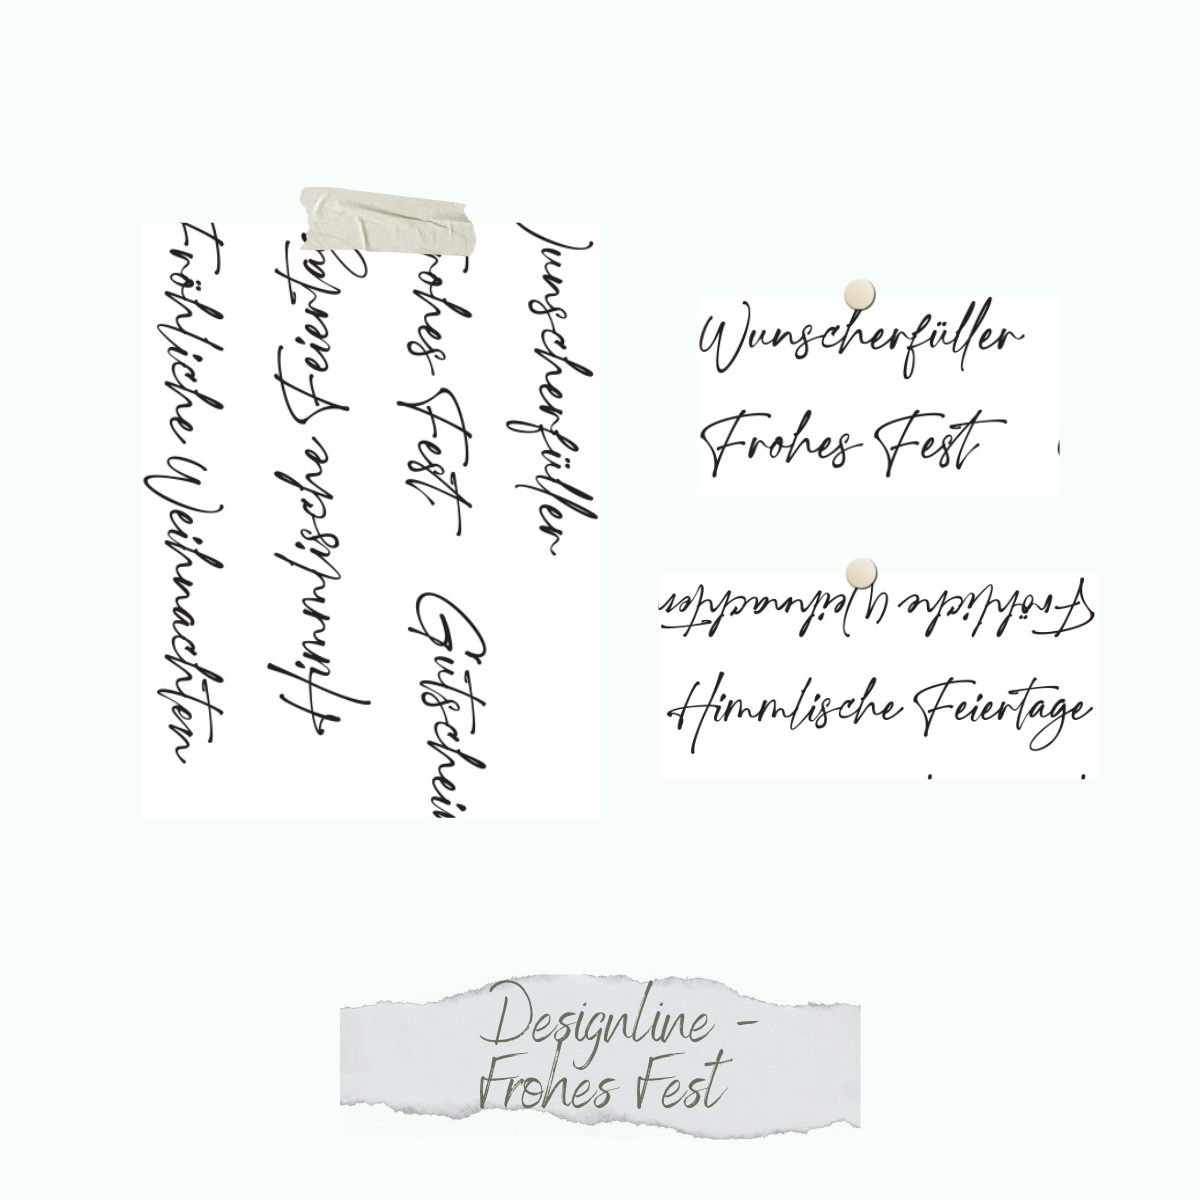 Wunscherfüller
Frohes Fest Gutschein
Himmlische Feiertag
Fröhliche Weihnachten
Wunscherfüller
Frohes Fest
Fröhliche Weihnachten
Himmlische Feiertage
Designline -
Frohes Fest